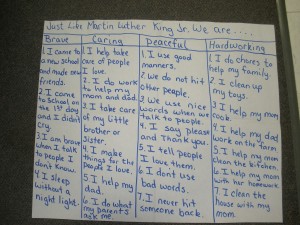 Just Like Martin Luther King Jr. We are....
Brave
1. I came to
a new school
and made new
friends.
2. I came
to school on
the 1st day
and I didn't
cry.
3. I am brave
when I talk
to people I
don't know.
4. I sleep
without a
night light.
Caring
1. I help take
care of people
I love.
2. I do work
to help my
mom and dad.
3. I take care
of my little
brother or
sister.
4. I make
things for the
people I love.
5. I help my
dad.
6. I do what
my parents
ask me.
Peaceful
1. I use good
manners.
2. We do not hit
other people.
3. We use nice
words when we
talk to people.
4. I say please
and thank you.
5. I tell people
I love them.
6. I dont use
bad words.
7. I never hit
someone back.
Hardworking
1. I do chores to
help my family.
2. I clean up
my toys.
3. I help my mom
cook.
4. I help my dad
work on the farm
5. I help my mom
clean the kitchen
6. I help my mom
with her homework.
7. I clean the
house with my
mom